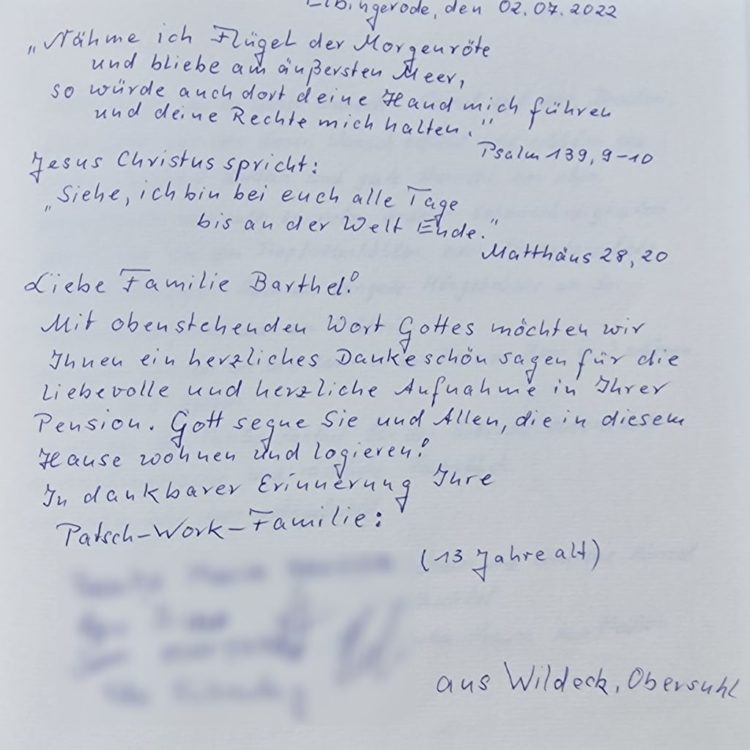 Elbingerode, den 02.07.2022
„Nähme ich Flügel der Morgenröte
und bliebe am äußersten Meer,
so würde auch dort deine Hand mich führen
und deine Rechte mich halten."
Psalm 139, 9-10
Jesus Christus spricht:
„Siehe, ich bin bei euch alle Tage
bis an der Welt Ende."
Matthäus 28, 20
Liebe Familie Barthel!
Mit obenstehenden Wort Gottes möchten wir
Ihnen ein herzliches Dankeschön sagen für die
liebevolle und herzliche Aufnahme in Ihrer
Pension. Gott segne Sie und Allen, die in diesem
Hause wohnen und logieren!
In dankbarer Erinnerung Ihre
Patsch-Work-Familie:
(13 Jahre alt)
aus Wildeck, Obersuhl